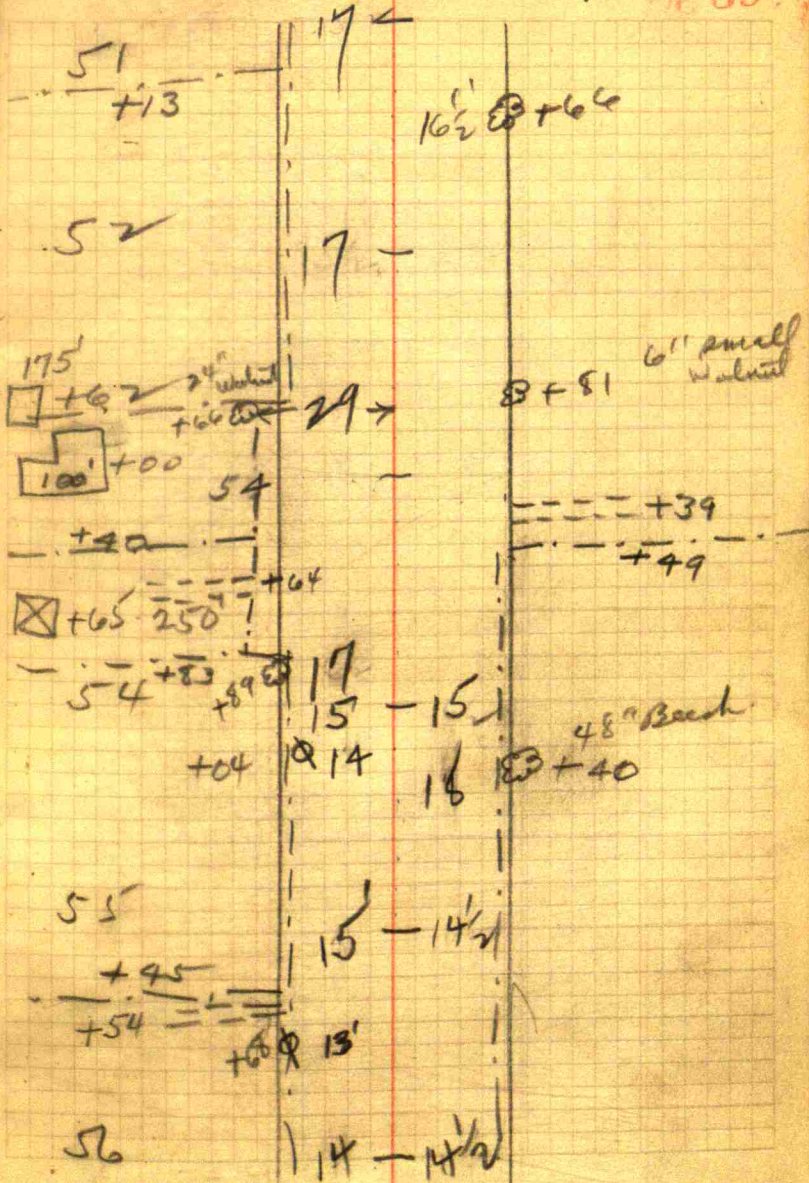 17
51
+13
16½' +66
52
17
175'
+62 24" Walnut
+66 29 +81 6" small Walnut
100' +00
54
+39
+40
+49
+64
+65 250'
+83 17
54 +89
15 - 15
48" Beech
+04 14 18 +40
55
15' - 14½
+45
+54
+68 13'
56 14 - 14½